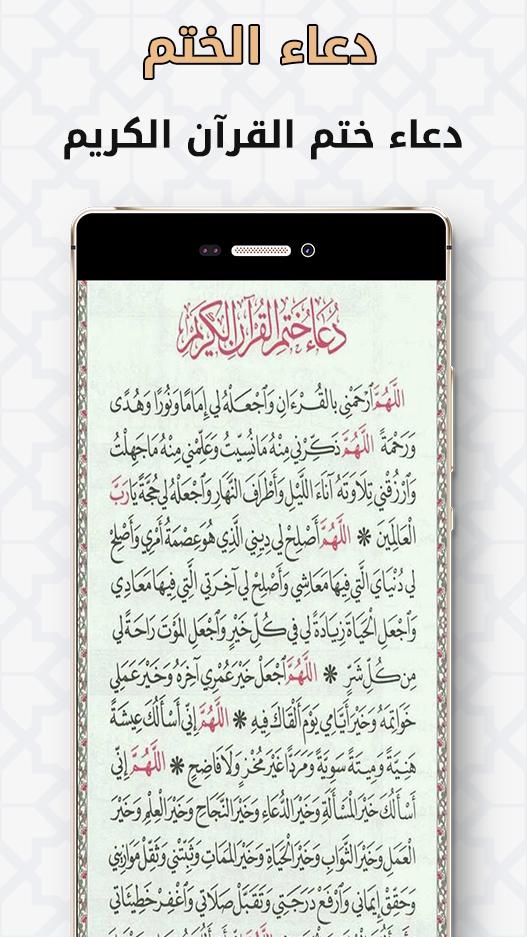 دعاء الختم
دعاء ختم القرآن الكريم
دُعَاءُ خَتْمِ القُرْآنِ الكَرِيمِ
اللَّهُمَّ ٱرْحَمْنِي بالقُرْءَانِ وَٱجْعَلهُ لِي إِمَامًا وَنُورًا وَهُدًى
وَرَحْمَةً اللَّهُمَّ ذَكِّرْنِي مِنْهُ مَا نُسِّيتُ وَعَلِّمْنِي مِنْهُ مَا جَهِلْتُ
وَٱرْزُقْنِي تِلَاوَتَهُ آنَاءَ اللَّيْلِ وَأَطْرَافَ النَّهَارِ وَٱجْعَلْهُ لِي حُجَّةً يَا رَبَّ
العَالَمِينَ * اللَّهُمَّ أَصْلِحْ لِي دِينِي الَّذِي هُوَ عِصْمَةُ أَمْرِي وَأَصْلِحْ
لِي دُنْيَايَ الَّتِي فِيهَا مَعَاشِي وَأَصْلِحْ لِي آخِرَتِي الَّتِي فِيهَا مَعَادِي
وَٱجْعَلِ الحَيَاةَ زِيَادَةً لِي فِي كُلِّ خَيْرٍ وَٱجْعَلِ المَوْتَ رَاحَةً لِي
مِن كُلِّ شَرٍّ * اللَّهُمَّ ٱجْعَلْ خَيْرَ عُمْرِي آخِرَهُ وَخَيْرَ عَمَلِي
خَوَاتِمَهُ وَخَيْرَ أَيَّامِي يَوْمَ أَلْقَاكَ فِيهِ * اللَّهُمَّ إِنِّي أَسْأَلُكَ عِيشَةً
هَنِيَّةً وَمِيتَةً سَوِيَّةً وَمَرَدًّا غَيْرَ مُخْزٍ وَلَا فَاضِحٍ * اللَّهُمَّ إِنِّي
أَسْأَلُكَ خَيْرَ المَسْأَلَةِ وَخَيْرَ الدُّعَاءِ وَخَيْرَ النَّجَاحِ وَخَيْرَ العِلْمِ وَخَيْرَ
العَمَلِ وَخَيْرَ الثَّوَابِ وَخَيْرَ الحَيَاةِ وَخَيْرَ المَمَاتِ وَثَبِّتْنِي وَثَقِّلْ مَوَازِينِي
وَحَقِّقْ إِيمَانِي وَٱرْفَعْ دَرَجَتِي وَتَقَبَّلْ صَلَاتِي وَٱغْفِرْ خَطِيئَاتِي